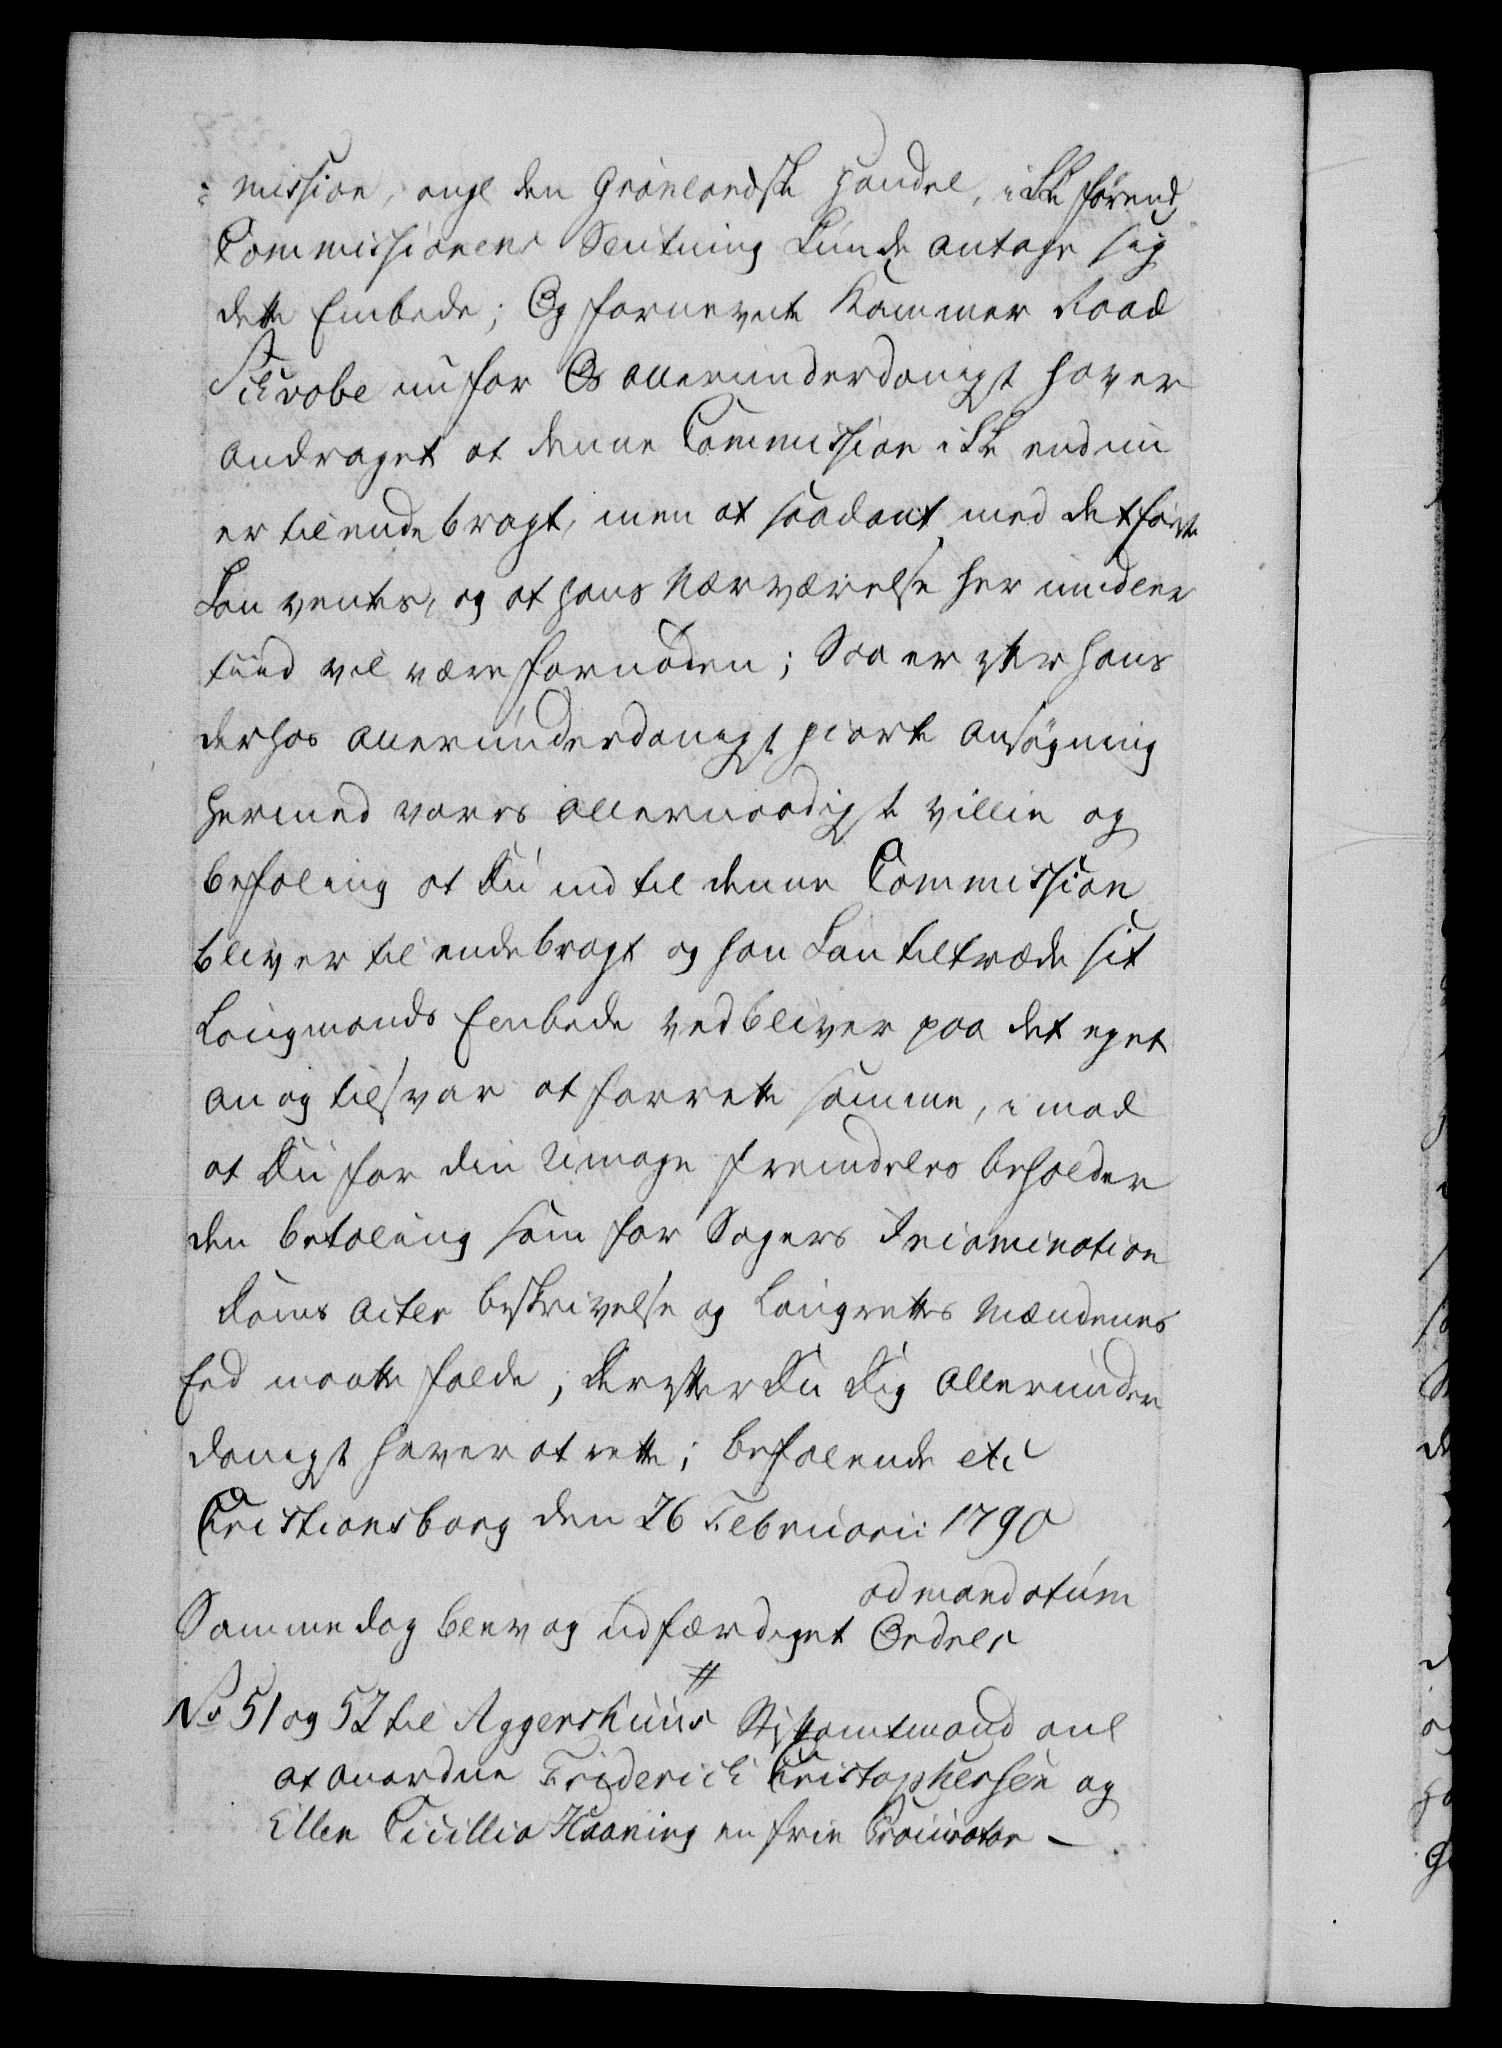 : mission, angl den Grønlandske Handel, ikke førend
Commissionens Slutning kunde antage sig
dette Embede; Og fornevnte Kammer Raad
Schrobe nu for Os allerunderdanigst haver
andraget at denne Commission ikke endnu
er tilendebragt, men at saadant med det første
kan ventes, og at hans Nærværelse her imidler
tiid vil være fornøden; Saa er efter hans
derhos allerunderdanigst giorte Ansøgning
hermed vores allernaadigste villie og
befaling at Du indtil denne Commission
bliver til endebragt og han kan tiltræde sit
Laugmands Embede vedbliver paa det eget
an og tilsvar at forrette samme, imod
at Du for din Umage fremdeles beholder
den betaling som for Sagers Examination
Doms Acter beskrivelse og Laugrettes Mændenes
Eed maatte falde; Derefter Du Dig allerunder
danigst haver at rette; befalende etc
Cristiansborg den 26 Februarii 1790
ad mandatum
Samme dag blev og udfærdiget Ordrer
No 51 og 52 til Aggershuus Stiftamtmand anl
at anordne Friderich Cristophersen og
Ellen Cicillia Haaning en frie Procurator –